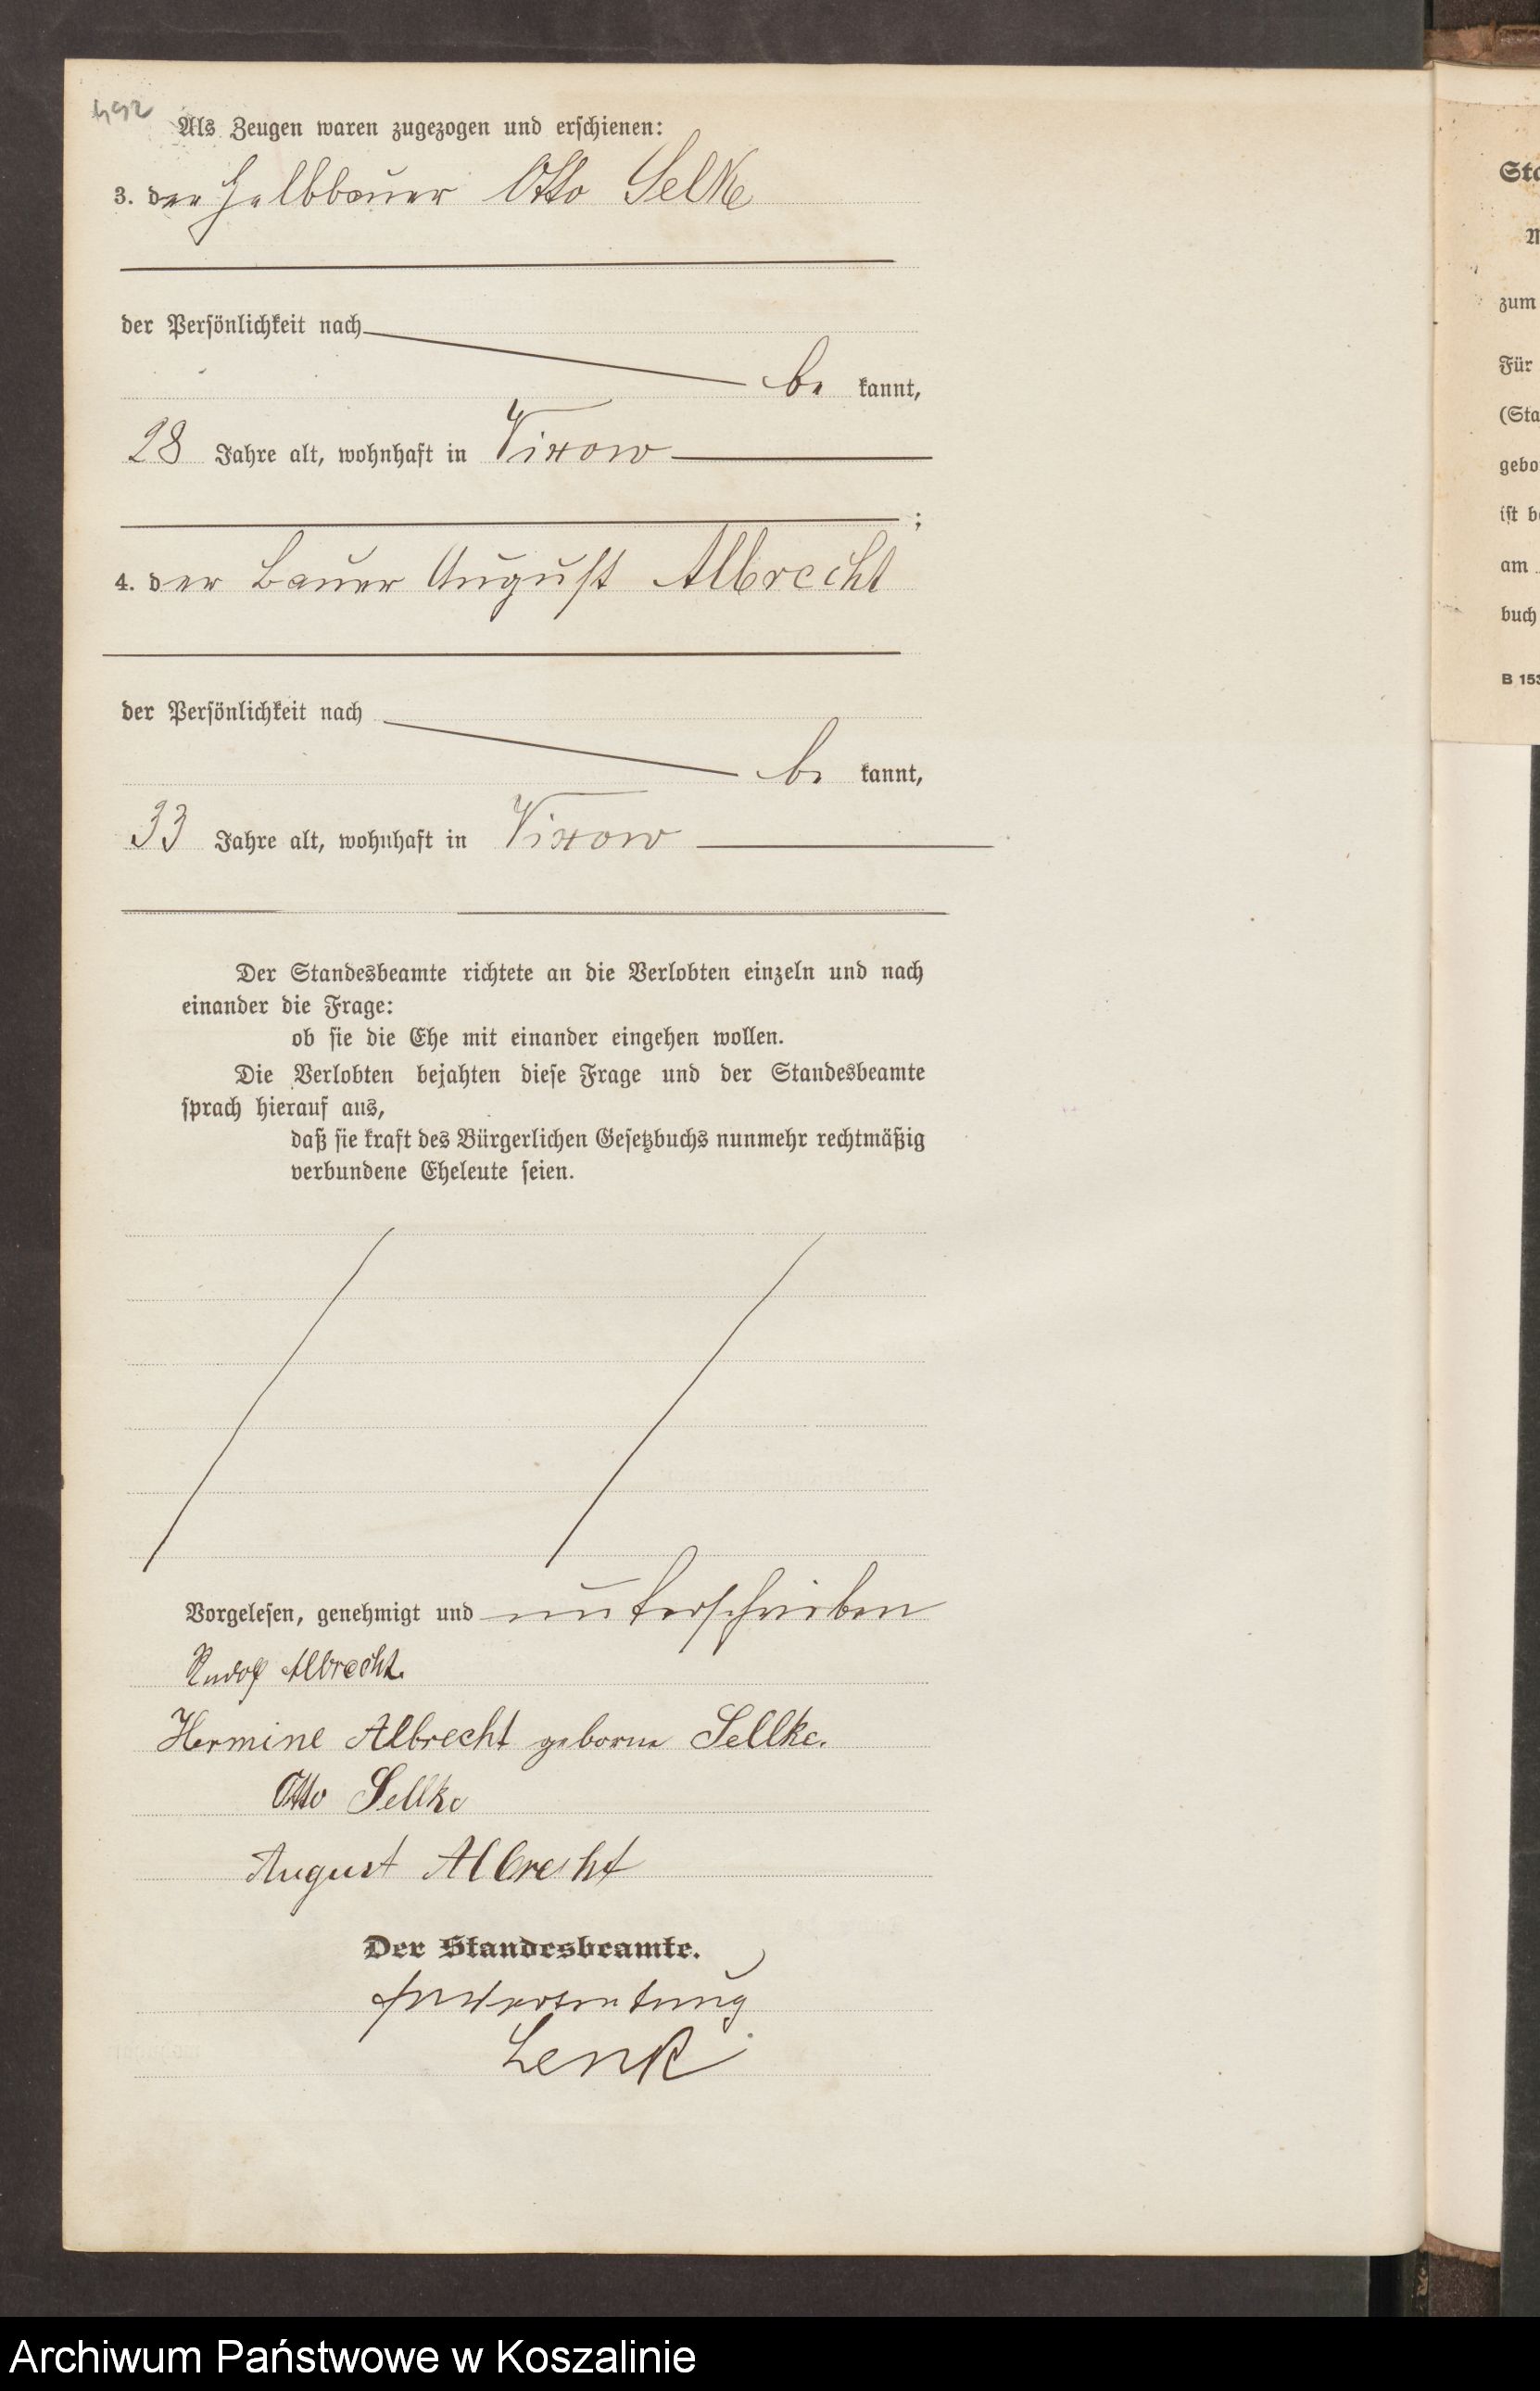 492
Als Zeugen waren zugezogen und erschienen:
3. der Halbbauer Otto Selke
der Persönlichkeit nach
be kannt,
28 Jahre alt, wohnhaft in Vixow
;
4. der Bauer August Albrecht
der Persönlichkeit nach
be kannt,
33 Jahre alt, wohnhaft in Vixow
Der Standesbeamte richtete an die Verlobten einzeln und nach
einander die Frage:
ob sie die Ehe mit einander eingehen wollen.
Die Verlobten bejahten diese Frage und der Standesbeamte
sprach hierauf aus,
daß sie kraft des Bürgerlichen Gesetzbuchs nunmehr rechtmäßig
verbundene Eheleute seien.
Vorgelesen, genehmigt und unterschrieben
Rudolf Albrecht.
Hermine Albrecht geborne Sellke.
Otto Sellke
August Albrecht
Der Standesbeamte.
In Vertretung
Lenk
zum
Für
(Sta
gebo
ist b
am
buch
B 153
Archiwum Państwowe w Koszalinie